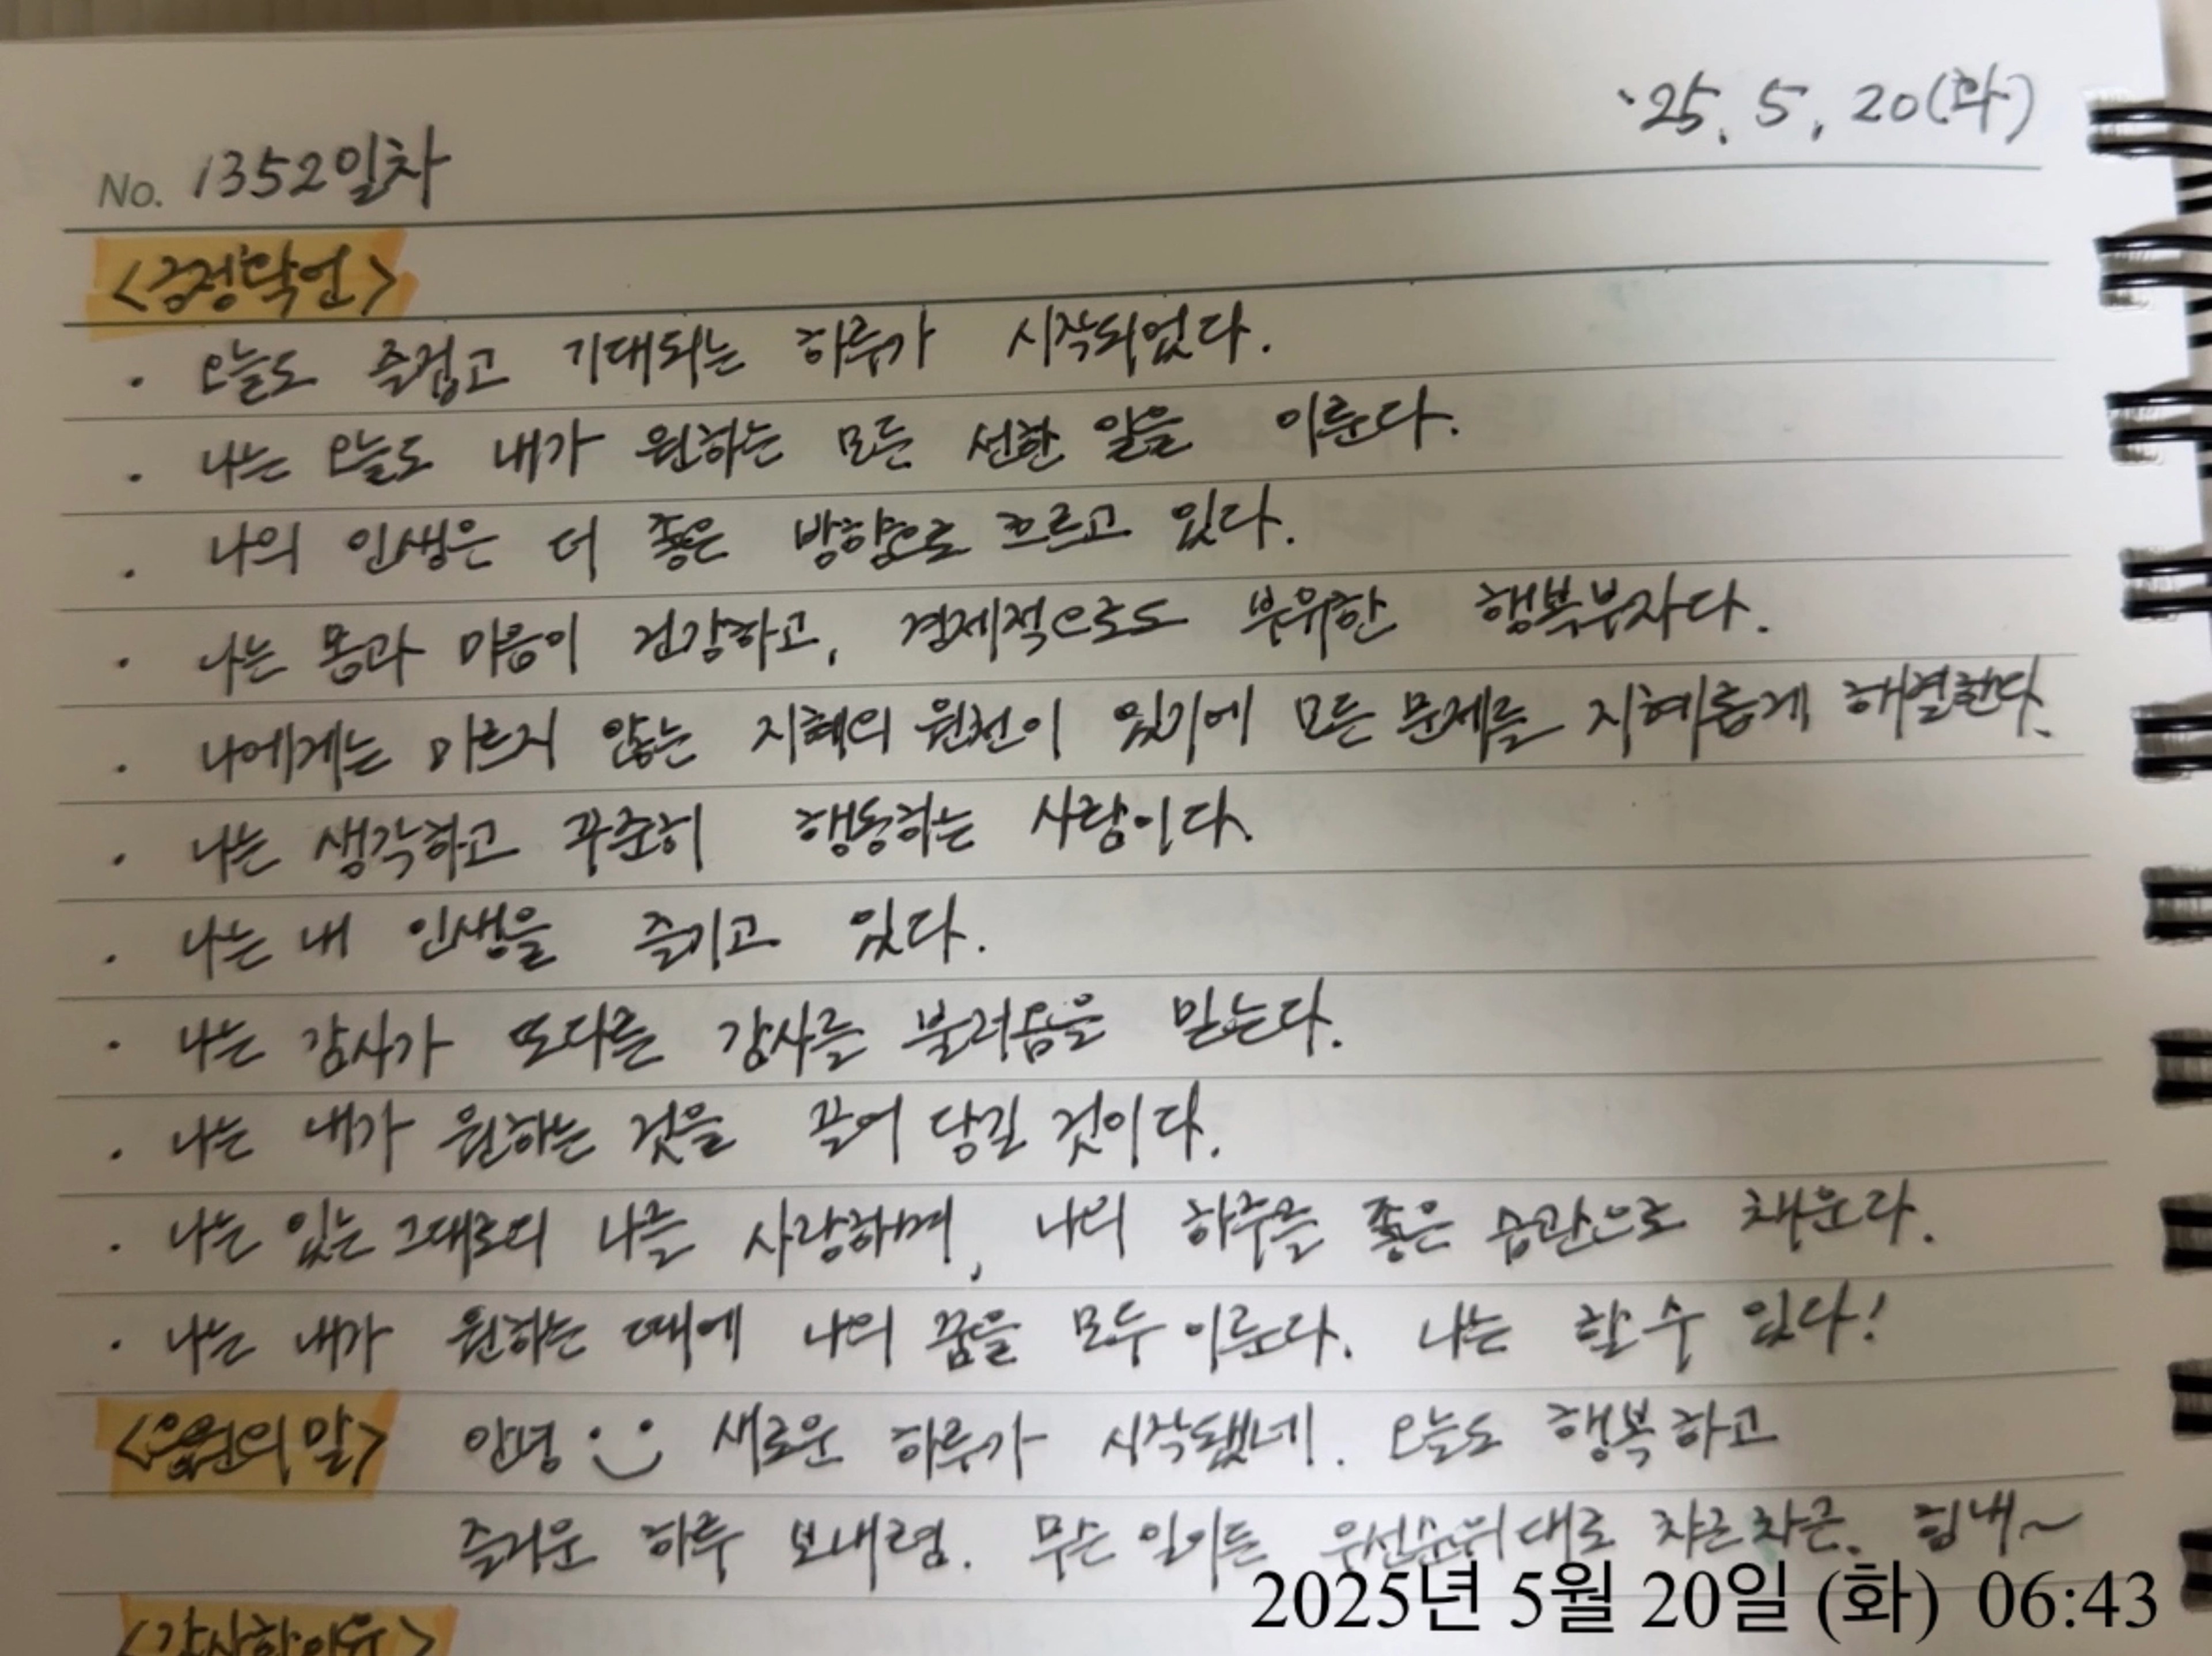 '25. 5. 20(화)
No. 1352일차
<긍정확언>
· 오늘도 즐겁고 기대되는 하루가 시작되었다.
· 나는 오늘도 내가 원하는 모든 선한 일을 이룬다.
· 나의 인생은 더 좋은 방향으로 흐르고 있다.
· 나는 몸과 마음이 건강하고, 경제적으로도 부유한 행복부자다.
· 나에게는 마르지 않는 지혜의 원천이 있기에 모든 문제를 지혜롭게 해결한다.
· 나는 생각하고 꾸준히 행동하는 사람이다.
· 나는 내 인생을 즐기고 있다.
· 나는 감사가 또다른 감사를 불러옴을 믿는다.
· 나는 내가 원하는 것을 끌어 당길 것이다.
· 나는 있는 그대로의 나를 사랑하며, 나의 하루를 좋은 습관으로 채운다.
· 나는 내가 원하는 때에 나의 꿈을 모두 이룬다. 나는 할 수 있다!
<응원의 말> 안녕 새로운 하루가 시작됐네. 오늘도 행복하고
즐거운 하루 보내렴. 무슨 일이든 우선순위대로 차근차근. 힘내~
2025년 5월 20일 (화) 06:43
<감사한이유>